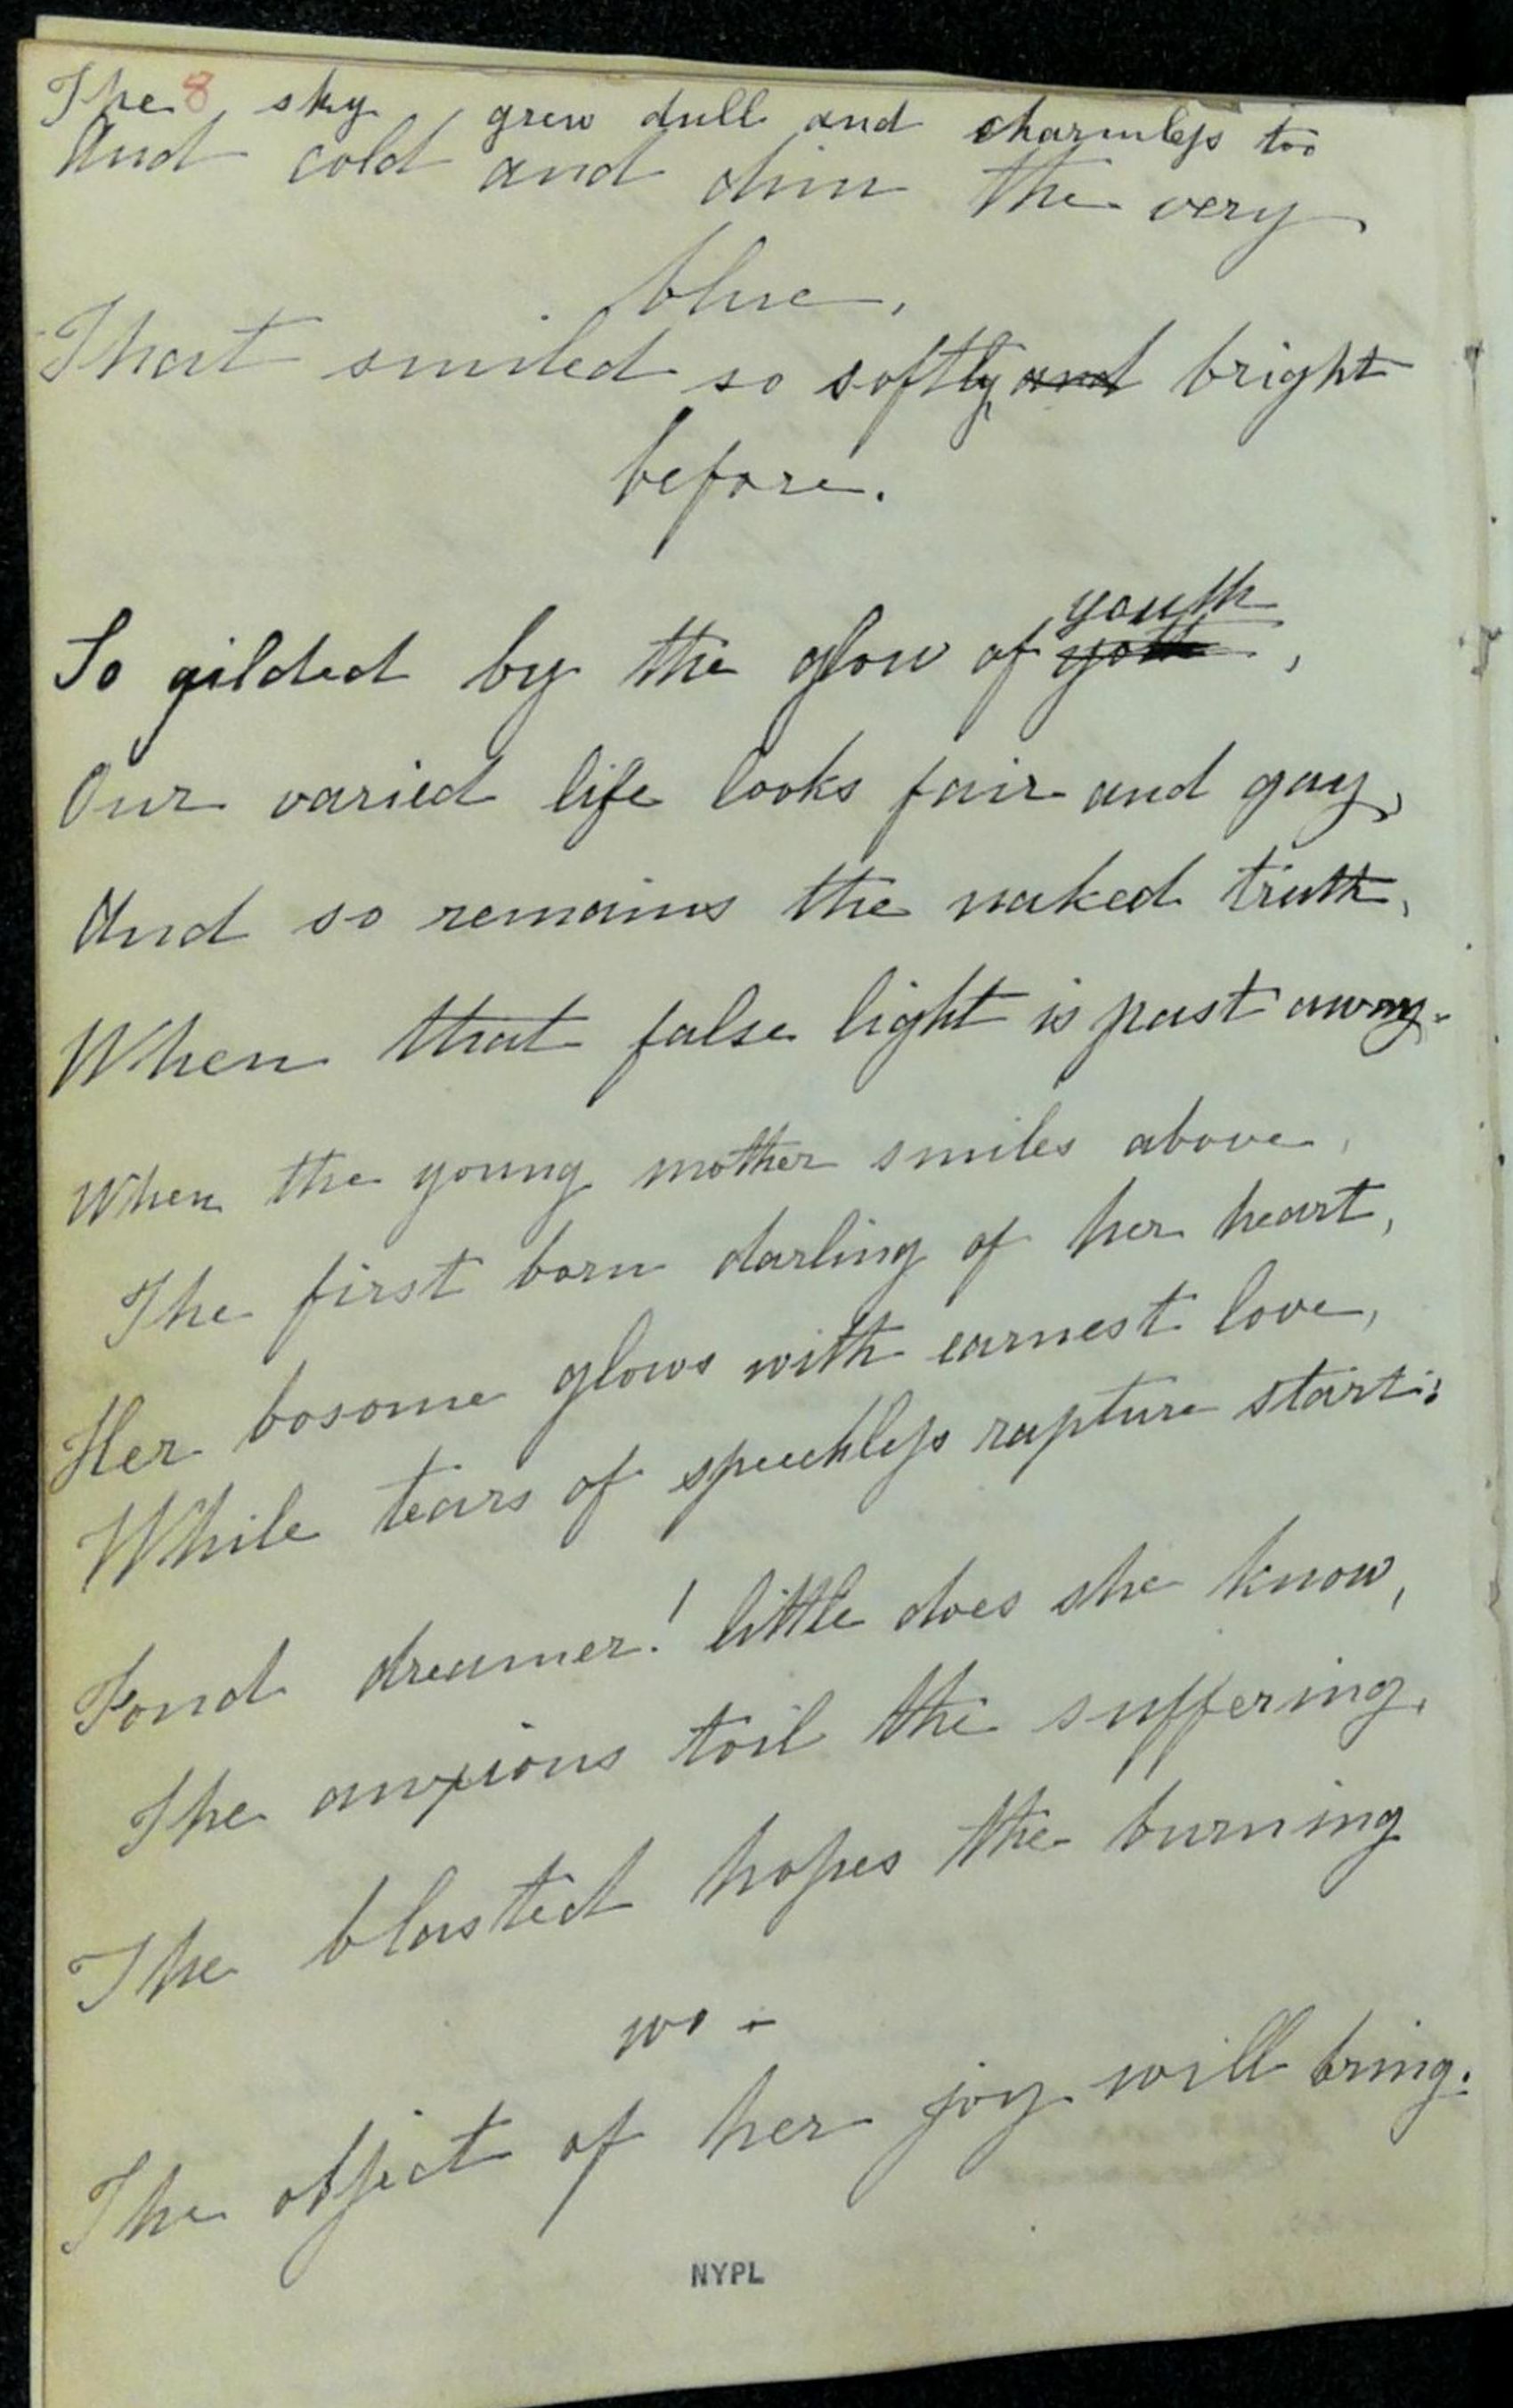 8
The sky grew dull and charmless too
And cold and dim the very
blue,
That smiled so softly and bright
before.
youth
So gilded by the glow of youth,
Our varied life looks fair and gay,
And so remains the naked truth,
When that false light is past away.
When the young mother smiles above,
The first born darling of her heart,
Her bosome glows with earnest love,
While tears of speechless rapture start:
Fond dreamer! little does she know,
The anxious toil the suffering,
The blasted hopes the burning
wo -
The object of her joy will bring.
NYPL